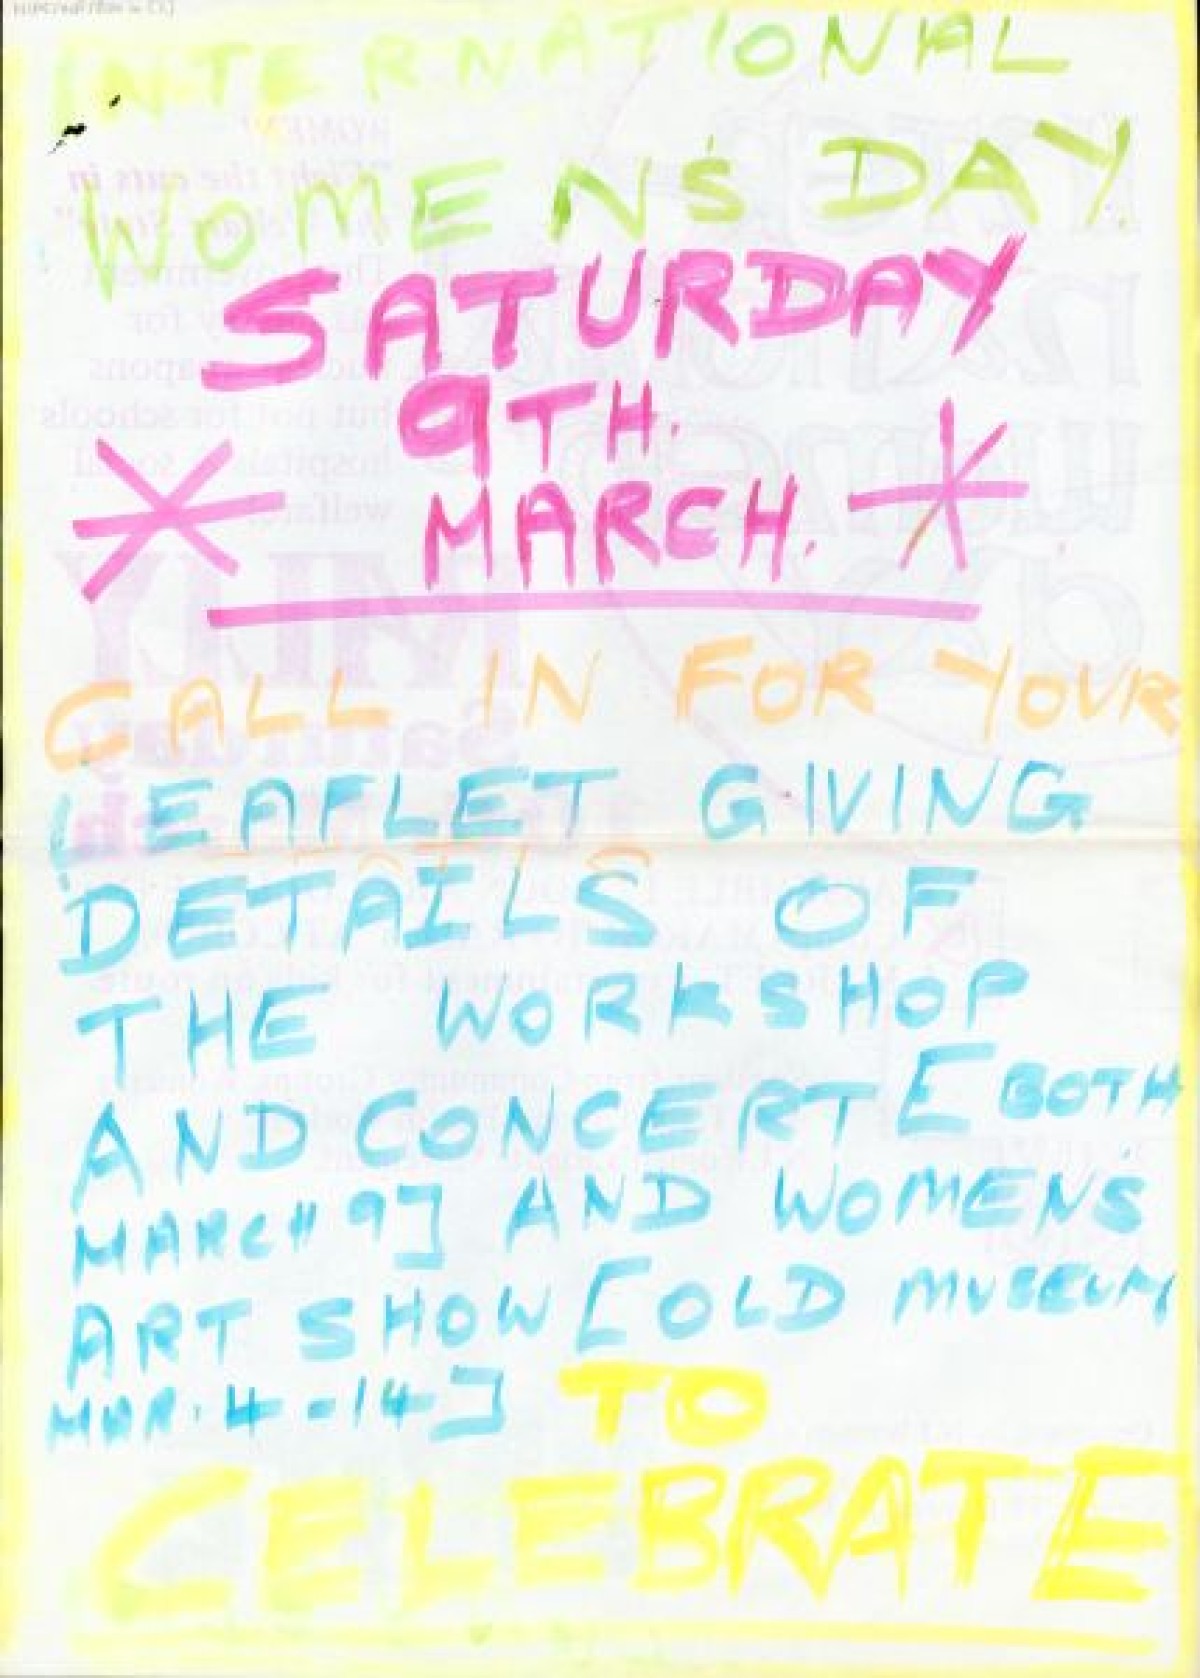 INTERNATIONAL
WOMEN'S DAY.
SATURDAY
9TH.
MARCH.
CALL IN FOR YOUR
LEAFLET GIVING
DETAILS OF
THE WORKSHOP
AND CONCERT [BOTH
MARCH 9] AND WOMEN'S
ART SHOW [OLD MUSEUM
MAR. 4-14] TO
CELEBRATE